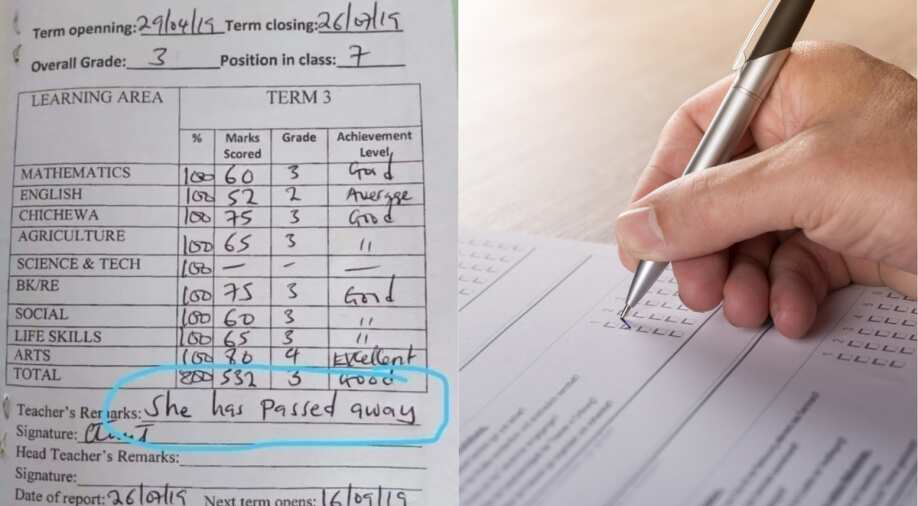 Term openning: 29/04/19 Term closing: 26/07/19
Overall Grade: 3 Position in class: 7
LEARNING AREA TERM 3
% Marks Scored Grade Achievement Level
MATHEMATICS 100 60 3 Good
ENGLISH 100 52 2 Average
CHICHEWA 100 75 3 Good
AGRICULTURE 100 65 3 "
SCIENCE & TECH 100 — — —
BK/RE 100 75 3 Good
SOCIAL 100 60 3 "
LIFE SKILLS 100 65 3 "
ARTS 100 80 4 Excellent
TOTAL 800 532 3 Good
Teacher's Remarks: She has passed away
Signature:
Head Teacher's Remarks:
Signature:
Date of report: 26/07/19 Next term opens: 16/09/19